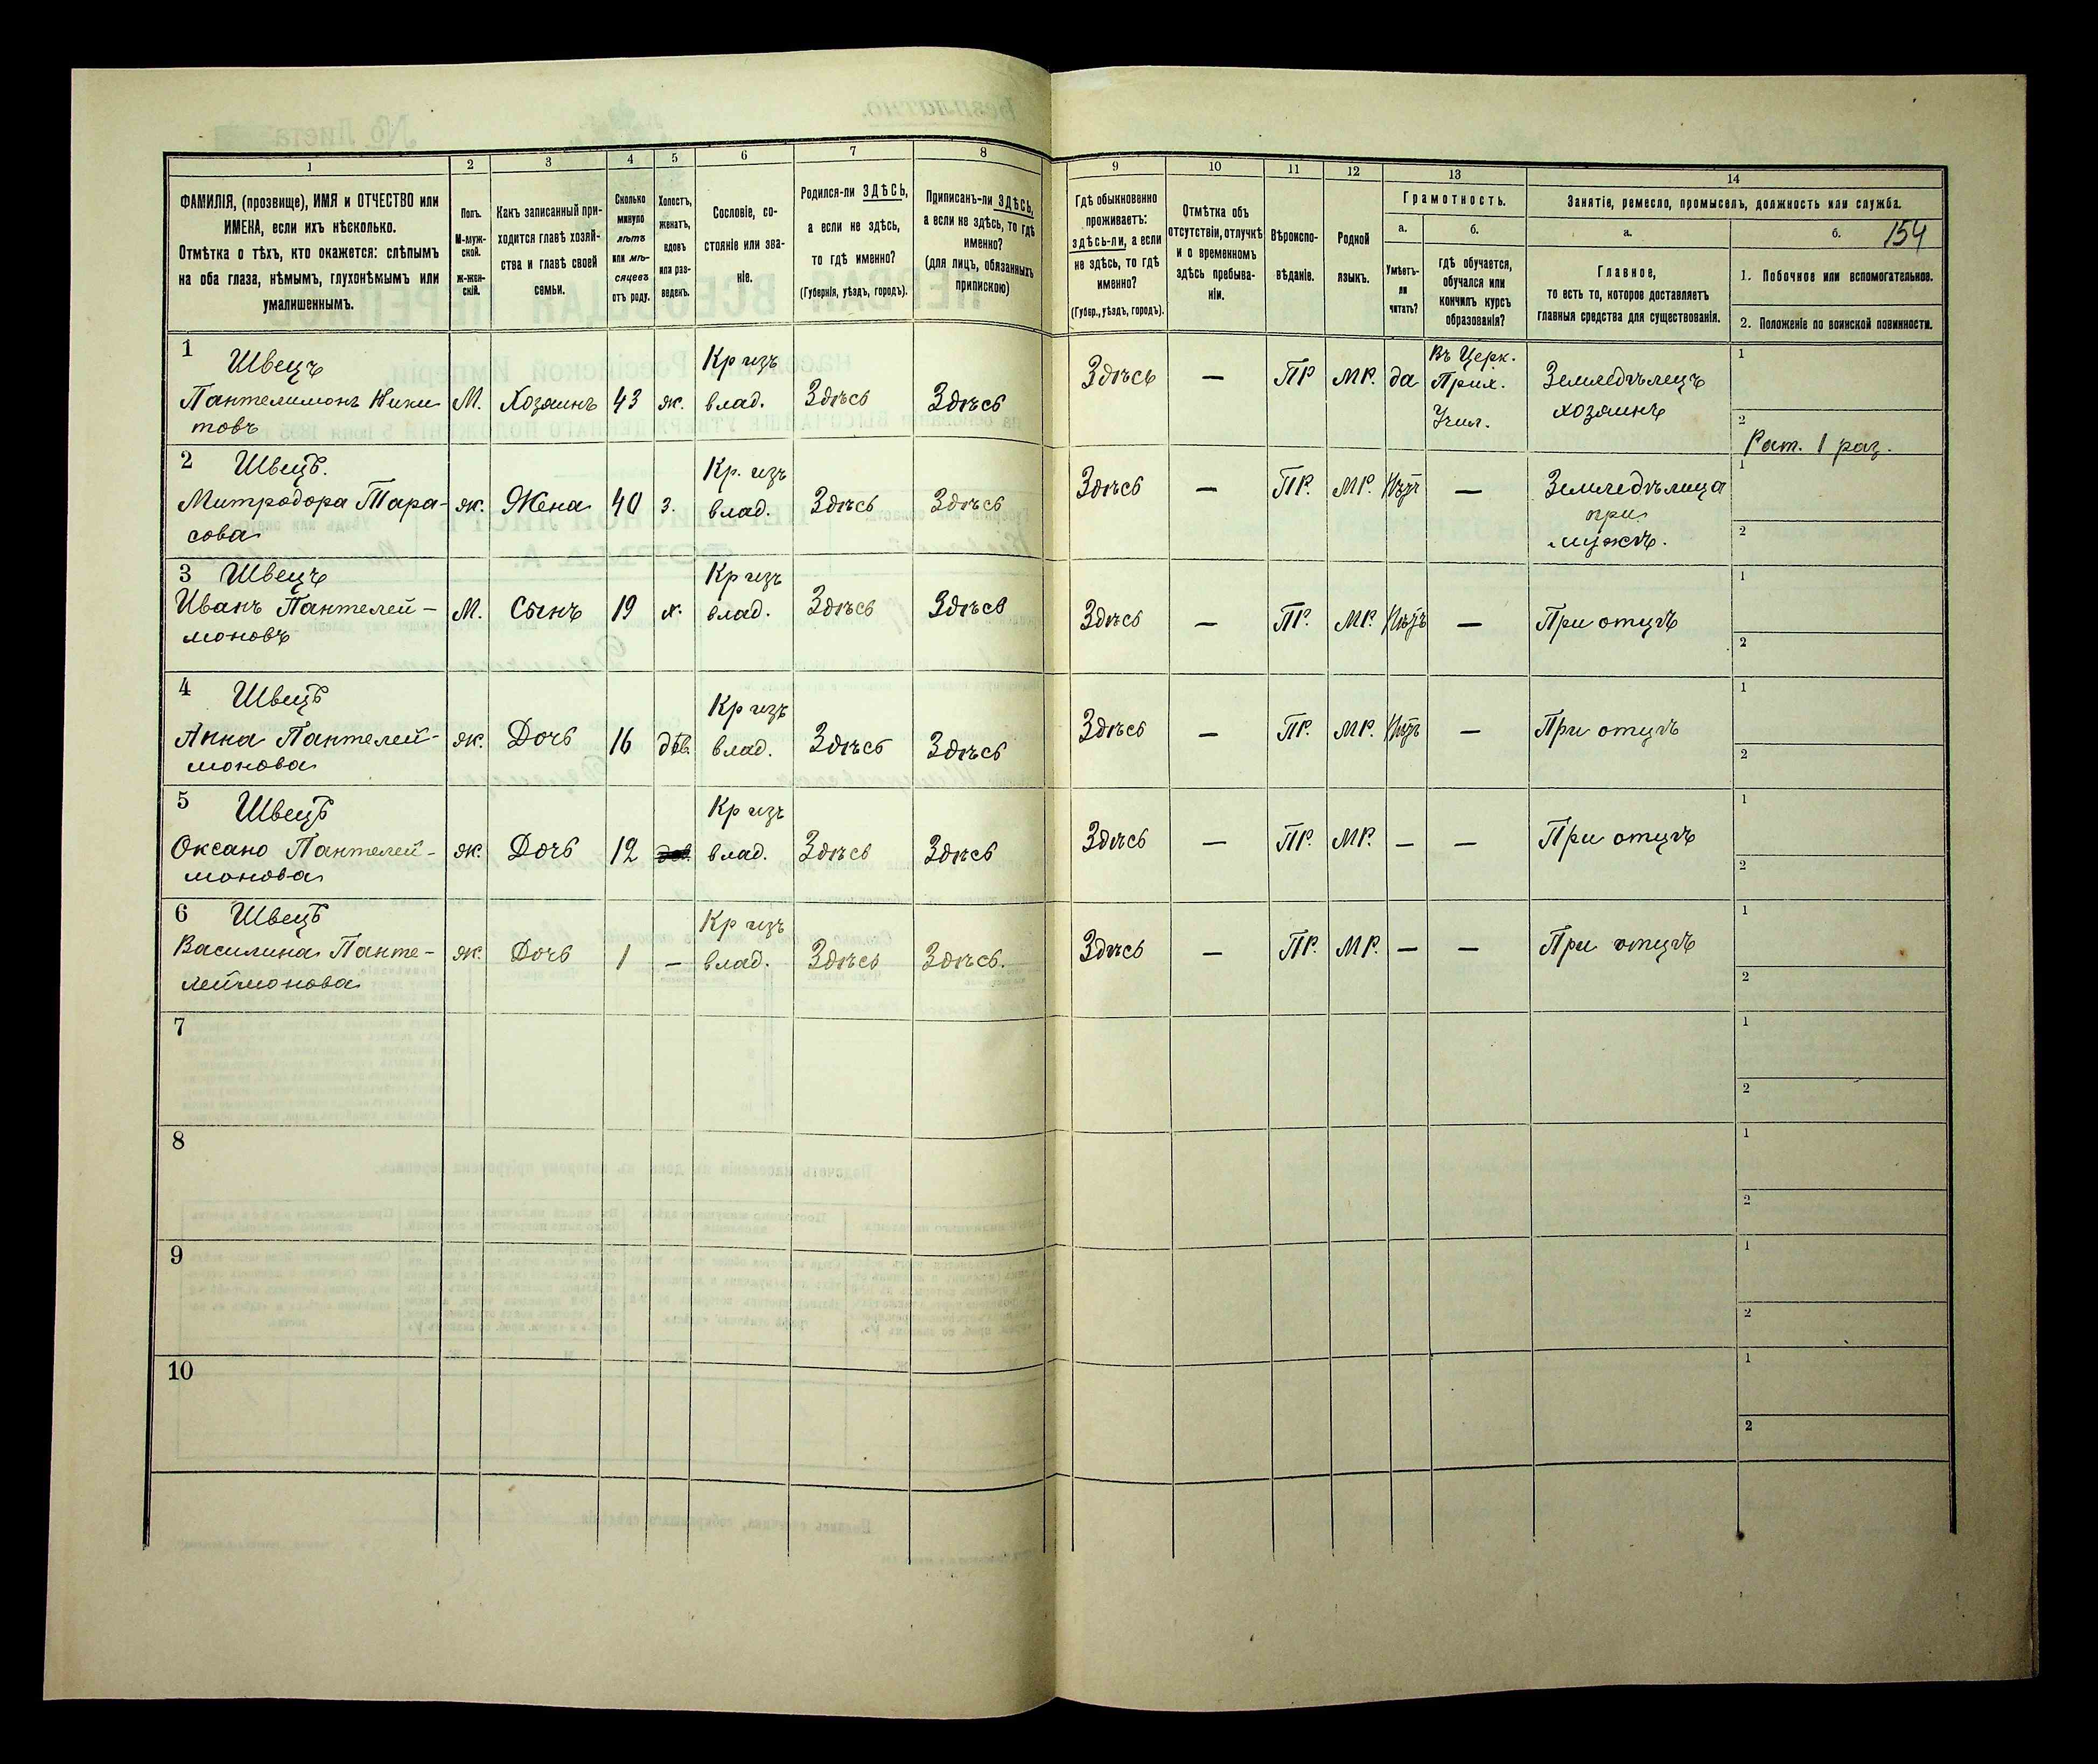 1
2
3
4
5
6
7
8
9
10
11
12
13
14
ФАМИЛІЯ, (прозвище), ИМЯ и ОТЧЕСТВО или
ИМЕНА, если ихъ нѣсколько.
Отмѣтка о тѣхъ, кто окажется: слѣпымъ
на оба глаза, нѣмымъ, глухонѣмымъ или
умалишеннымъ.
Полъ.
М-муж-
ской.
Ж-жен-
скій.
Какъ записанный при-
ходится главѣ хозяй-
ства и главѣ своей
семьи.
Сколько
минуло
лѣтъ
или мѣ-
сяцевъ
отъ роду.
Холостъ,
женатъ,
вдовъ
или раз-
веденъ.
Сословіе, со-
стояніе или зва-
ніе.
Родился-ли ЗДѢСЬ,
а если не здѣсь,
то гдѣ именно?
(Губернія, уѣздъ, городъ).
Приписанъ-ли ЗДѢСЬ,
а если не здѣсь, то гдѣ
именно?
(для лицъ, обязанныхъ
припискою)
Гдѣ обыкновенно
проживаетъ:
здѣсь-ли, а если
не здѣсь, то гдѣ
именно?
(Губер., уѣздъ, городъ).
Отмѣтка объ
отсутствіи, отлучкѣ
и о временномъ
здѣсь пребыва-
ніи.
Вѣроиспо-
вѣданіе.
Родной
языкъ.
Грамотность.
а.
Умѣетъ-
ли
читать?
б.
гдѣ обучается,
обучался или
кончилъ курсъ
образованія?
Занятіе, ремесло, промыселъ, должность или служба.
а.
Главное,
то есть то, которое доставляетъ
главныя средства для существованія.
б. 154
1. Побочное или вспомогательное.
2. Положеніе по воинской повинности.
1 Швецъ
Пантелимонъ Ники
товъ
М.
Хозяинъ
43
ж.
Кр изъ
влад.
Здѣсь
Здѣсь
Здѣсь
—
ПР
МР.
да
Въ Церк.
Прих.
Учил.
Земледѣлецъ
хозяинъ
1
2
Рат. 1 раз.
2 Швецъ.
Митродора Тара-
сова
ж.
Жена
40
з.
Кр. изъ
влад.
Здѣсь
Здѣсь
Здѣсь
—
ПР.
МР.
Нѣтъ
—
Земледѣлица
при
мужѣ.
1
2
3 Швецъ
Иванъ Пантелей-
моновъ
М.
Сынъ
19
х.
Кр изъ
влад.
Здѣсь
Здѣсь
Здѣсь
—
ПР.
МР.
Нѣтъ
—
При отцѣ
1
2
4 Швецъ
Анна Пантелей-
монова
ж.
Дочь
16
дѣв.
Кр изъ
влад.
Здѣсь
Здѣсь
Здѣсь
—
ПР.
МР.
Нѣтъ
—
При отцѣ
1
2
5 Швецъ
Оксано Пантелей-
монова
ж.
Дочь
12
Кр изъ
влад.
Здѣсь
Здѣсь
Здѣсь
—
ПР.
МР.
—
—
При отцѣ
1
2
6 Швецъ
Василина Панте-
леймонова
ж.
Дочь
1
—
Кр изъ
влад.
Здѣсь
Здѣсь.
Здѣсь
—
ПР.
МР.
—
—
При отцѣ
1
2
7
1
2
8
1
2
9
1
2
10
1
2